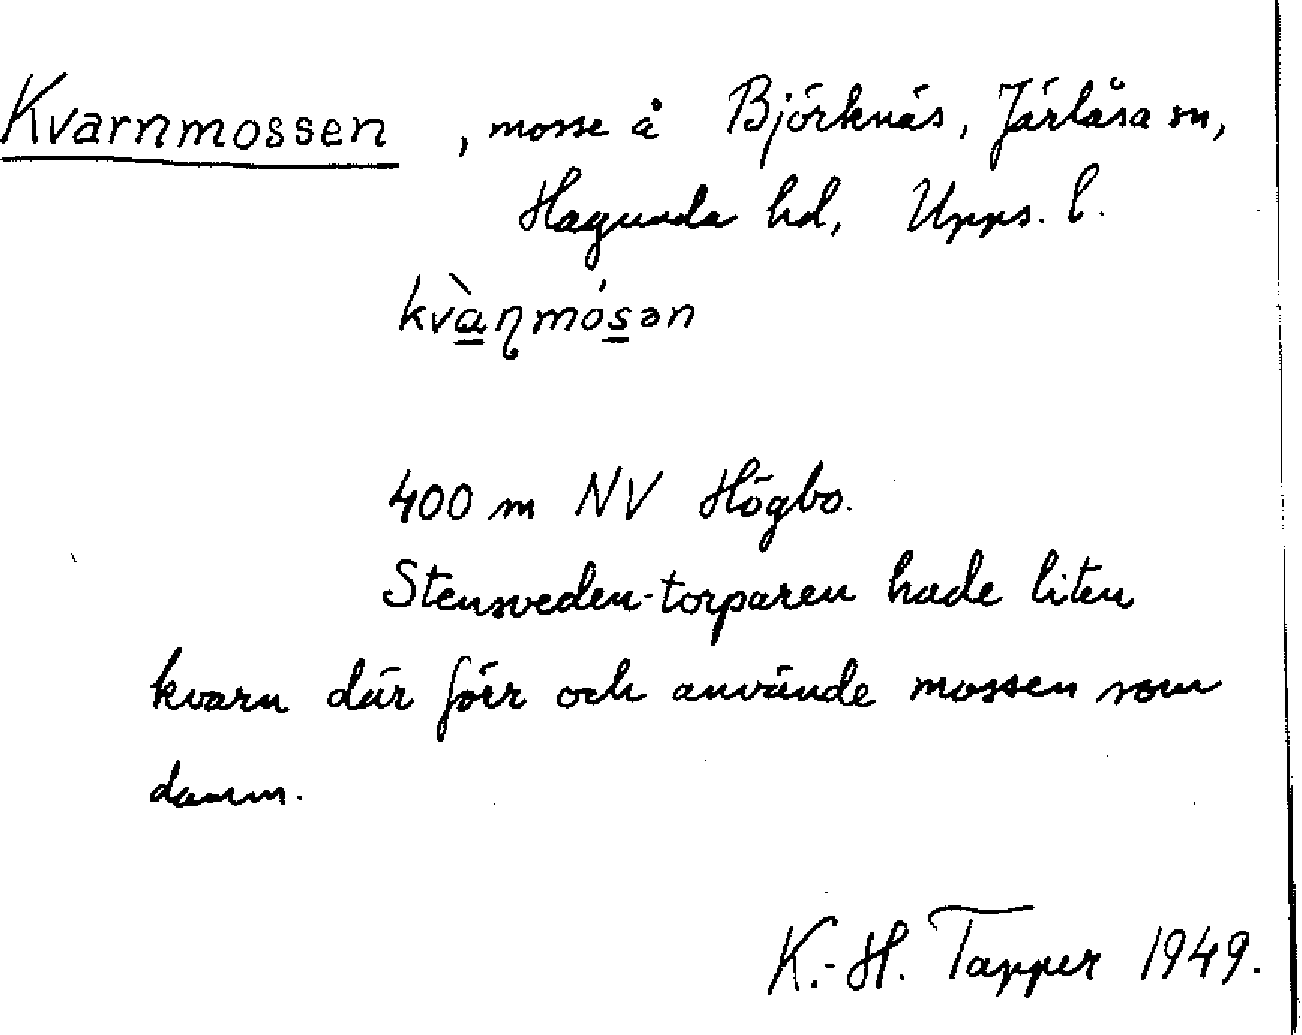 Kvarnmossen, mosse å Björknäs, Järlåsa sn,
Hagunda hd, Upps. l.
kvàɳmósən
400 m NV Högbo.
Stensveden-torparen hade liten
kvarn där förr och använde mossen som
damm.
K.-H. Tapper 1949.